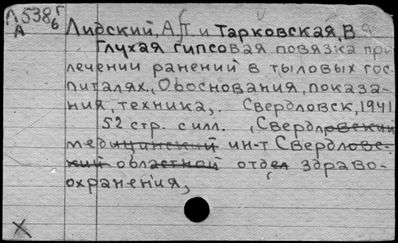 Л538 г/6
А
Лидский, А.Т. и Тарковская, В Я
Глухая гипсовая повязка при
лечении ранений в тыловых гос-
питалях, Обоснования, показа-
ния, техника,. Свердловск, 1941
52 стр. с илл. (Свердловский
медицинский ин-т Свердловс-
кий областной отдел здраво-
охранения,
X